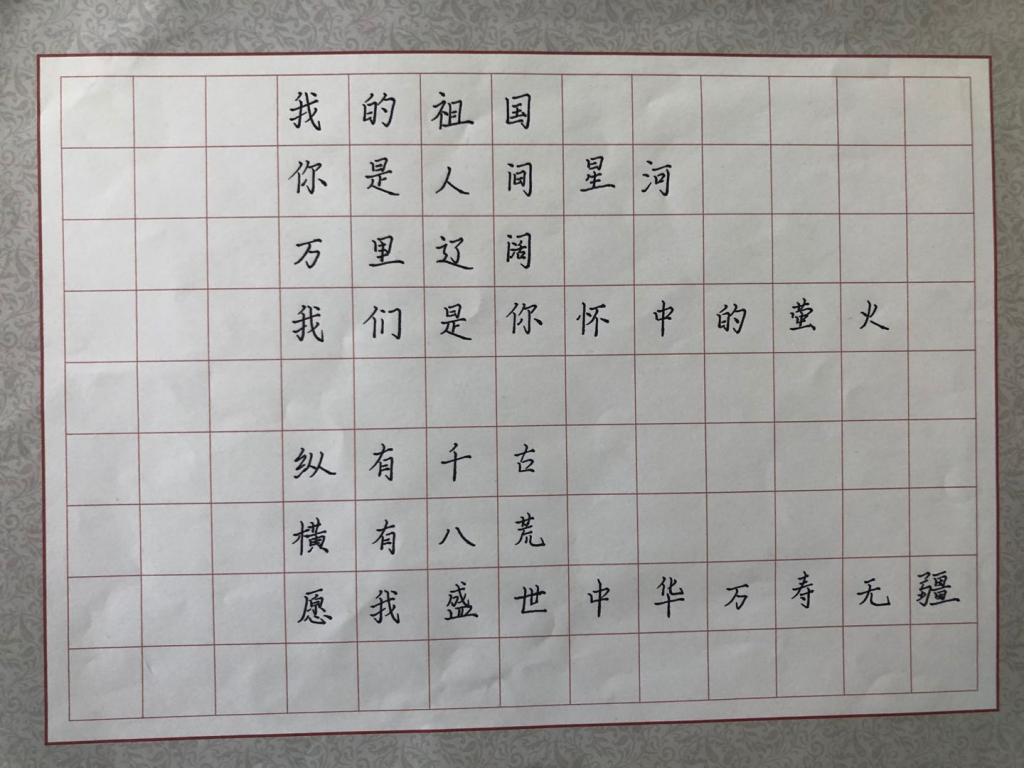 我的祖国
你是人间星河
万里辽阔
我们是你怀中的萤火
纵有千古
横有八荒
愿我盛世中华万寿无疆